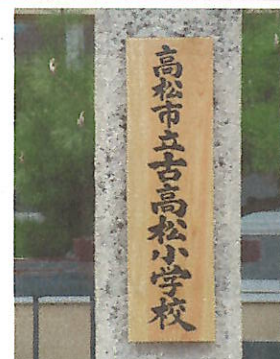 高松市立古高松小学校